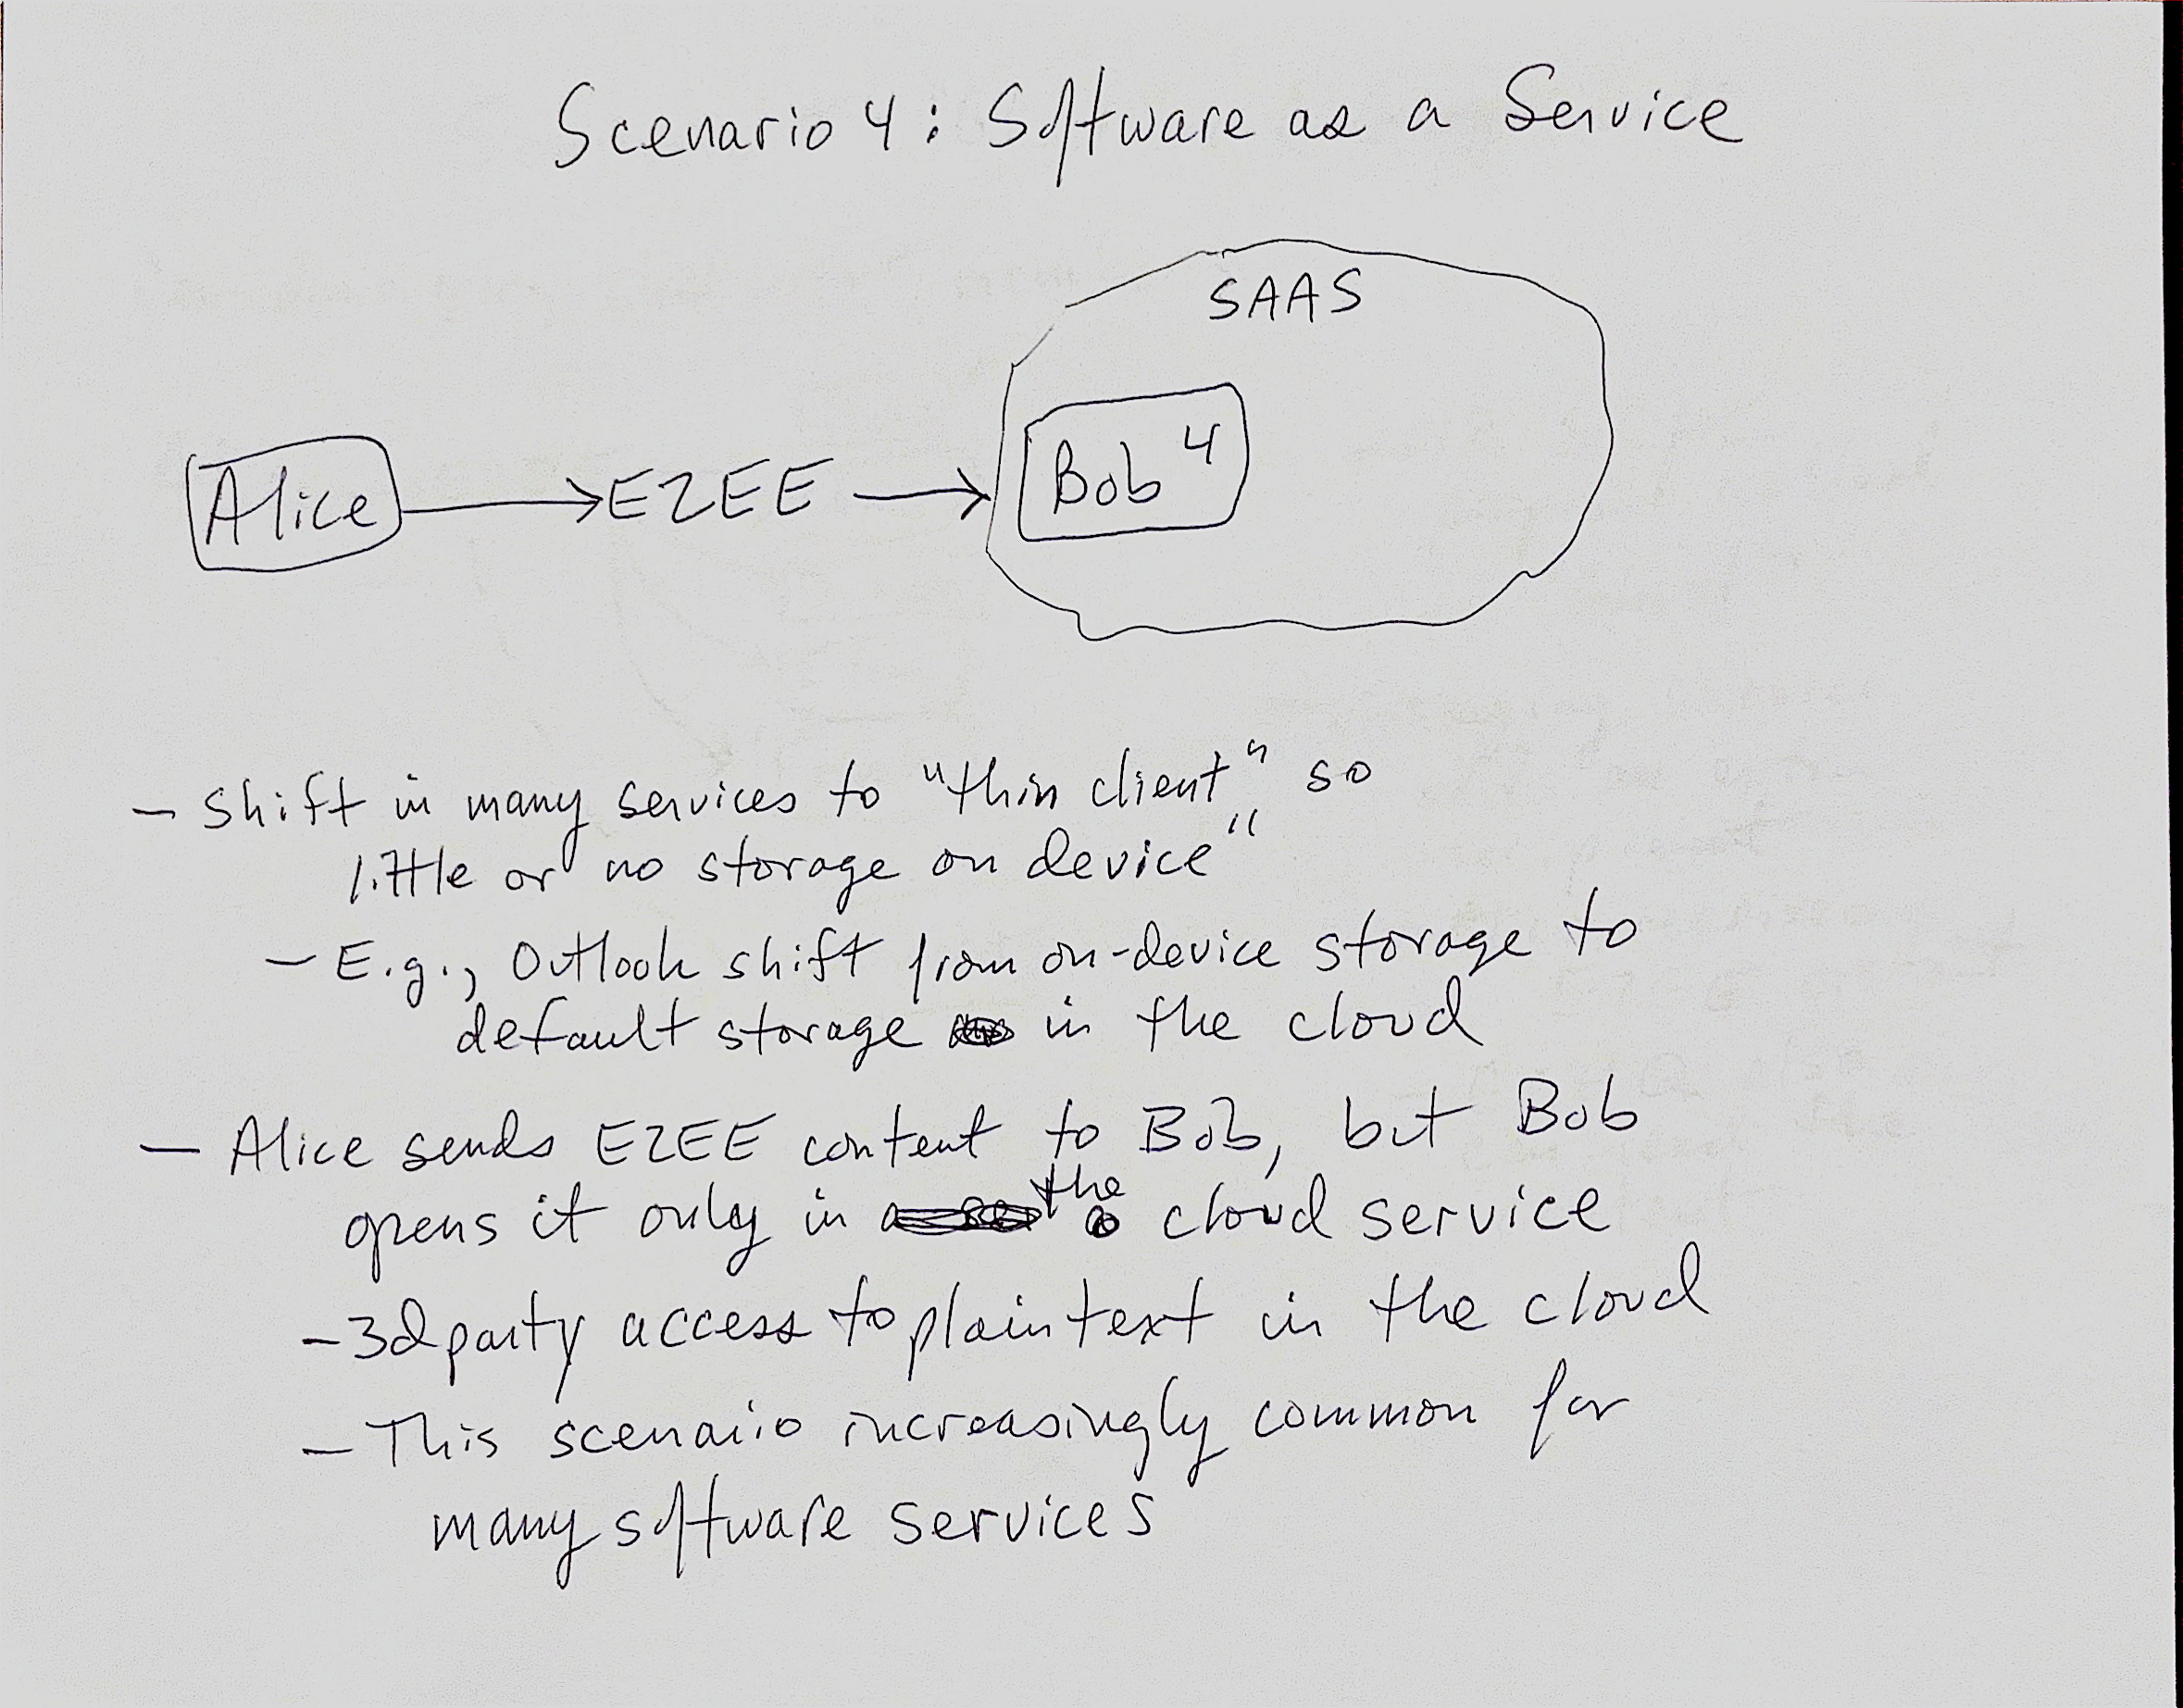 Scenario 4: Software as a Service
SAAS
Alice → E2EE → Bob 4
- Shift in many services to "thin client" so
little or no storage on device"
- E.g., Outlook shift from on-device storage to
default storage in the cloud
- Alice sends E2EE content to Bob, but Bob
opens it only in the cloud service
- 3d party access to plaintext in the cloud
- This scenario increasingly common for
many software services